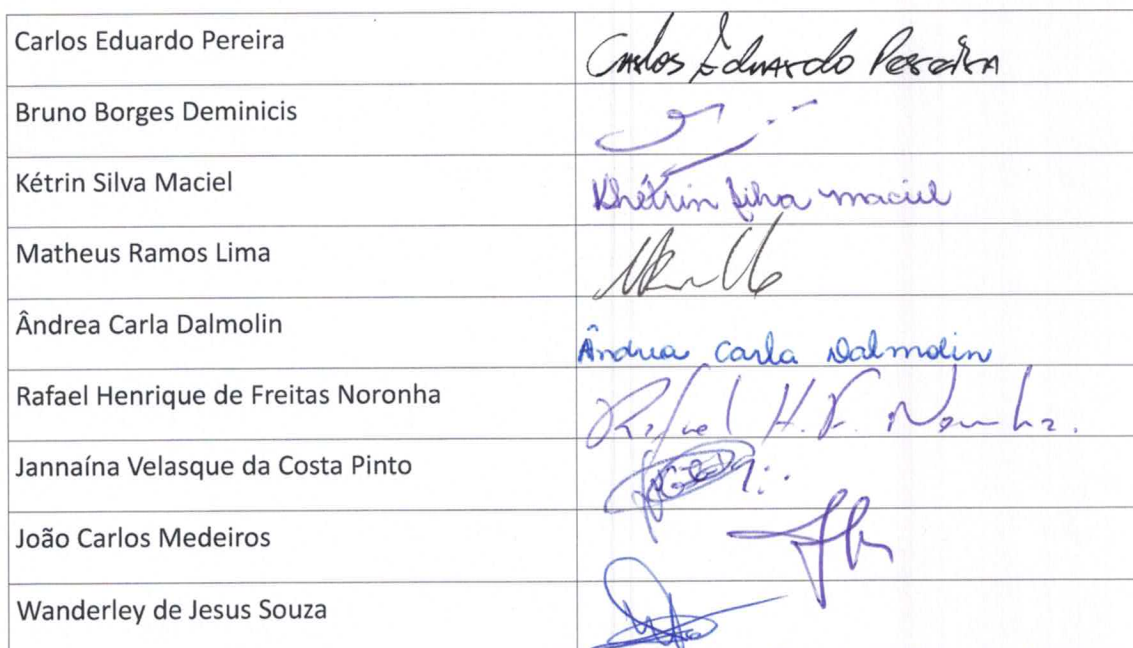 Carlos Eduardo Pereira Carlos Eduardo Pereira
Bruno Borges Deminicis
Kétrin Silva Maciel Khétrin Silva maciel
Matheus Ramos Lima
Ândrea Carla Dalmolin Ândrea Carla Dalmolin
Rafael Henrique de Freitas Noronha Rafael H. F. Noronha.
Jannaína Velasque da Costa Pinto
João Carlos Medeiros
Wanderley de Jesus Souza